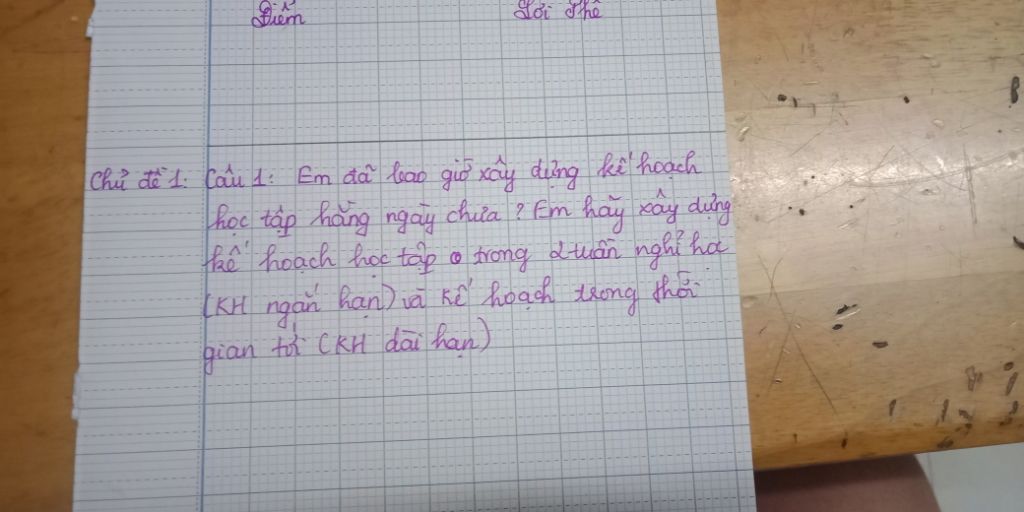 Điểm Lời Phê
Chủ đề 1: Câu 1: Em đã bao giờ xây dựng kế hoạch
học tập hằng ngày chưa? Em hãy xây dựng
kế hoạch học tập trong 2 tuần nghỉ học
(KH ngắn hạn) và kế hoạch trong thời
gian tới (KH dài hạn)